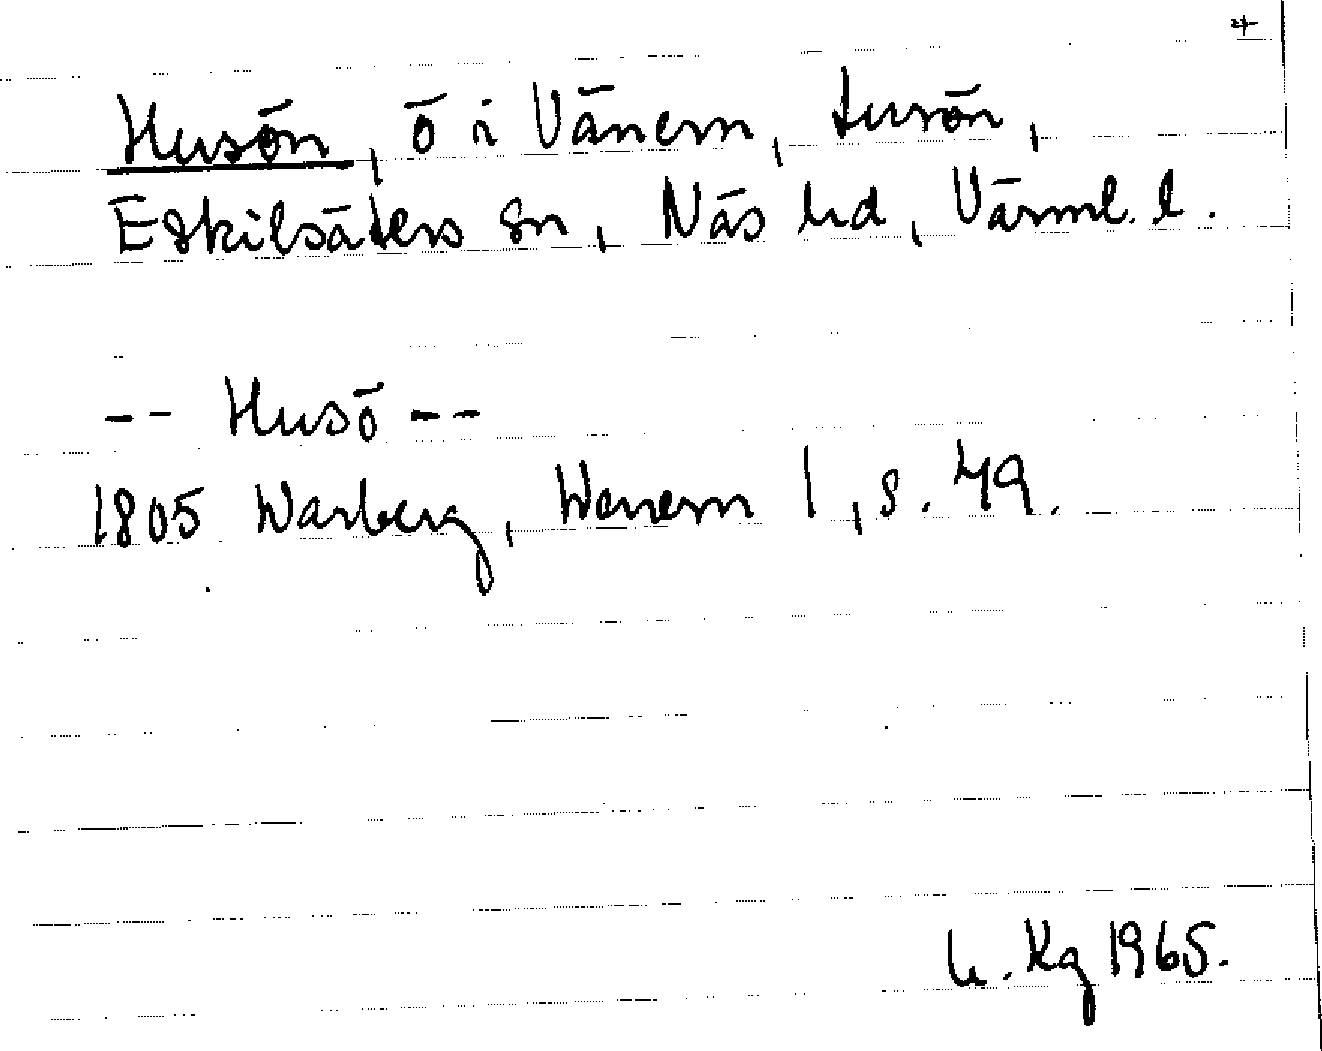 Husön, ö i Vänern, Lurön,
Eskilsäters sn, Näs hd, Värml. l.
-- Husö --
1805 Warberg, Wenern 1, s. 49.
U. Kg 1965.